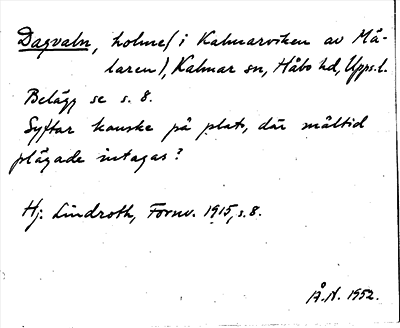 Dagvaln, holme (i Kalmarviken av Mä-
laren), Kalmar sn, Håbo hd, Upps.l.
Belägg se s. 8.
Syftar kanske på plats, där måltid
plägade intagas?
Hj. Lindroth, Fornv. 1915, s. 8.
Å.N. 1952.